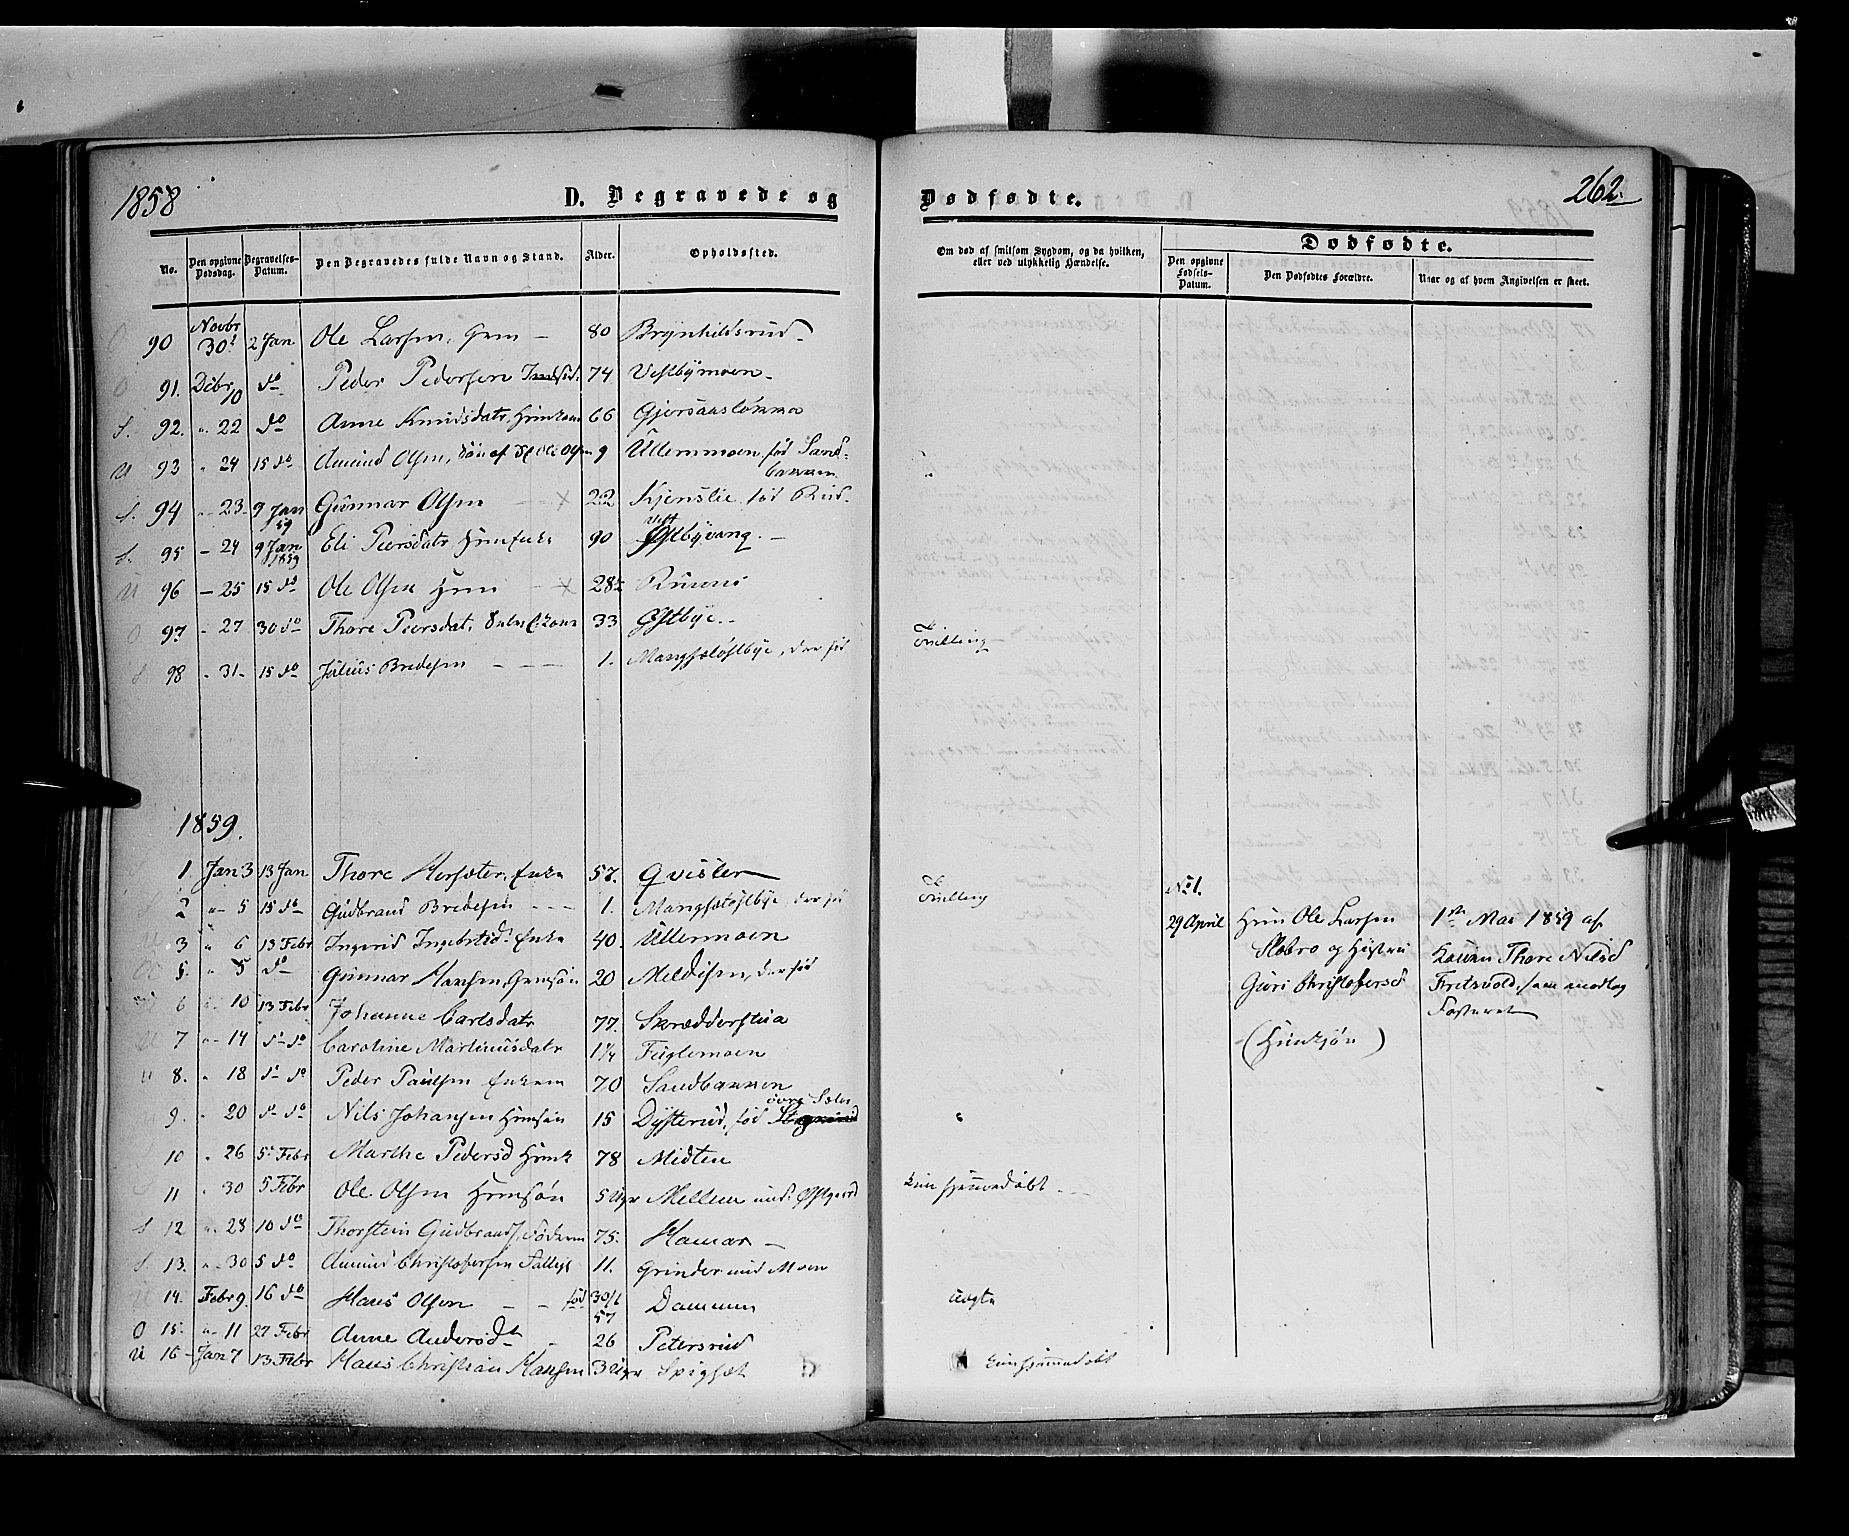 1858 D. Begravede og Dødfødte. 262.
No. Den opgivne Dødsdag. Begravelses-Datum. Den Begravedes fulde Navn og Stand. Alder. Opholdssted.
Om død af smitsom Sygdom, og da hvilken, eller ved ulykkelig Hændelse.
Dødfødte.
Den opgivne Fødsels-Datum. Den Dødfødtes Forældre. Naar og af hvem Angivelsen er skeet.
O 90 Novbr 30t 2 Jan Ole Larsen, Grm — 80 Brynhildsrud
O 91. Dcbr 10 do Peder Pedersen 74 Vestbymoen
S. 92. " 22 do Anne Knudsdatr. 66 Gjørsaasløkka
U 93 " 24 15 do Amund Olsen, Søn af Ole Olsen 9 Ullernmoen, fød Sandbakken
S. 94 " 23 9 Jan 59 Gunnar Olsen — x 22 Kjenslie, fød Rud
S. 95 — 24 9 Jan 1859 Eli Peersdatr 90 Vestbyvang. —
U 96 — 25 15 do Ole Olsen Hmn — x 28 
O 97 — 27 30 do Thore Peersdat. 33 Østbye. —
S 98 " 31 15 do Julius Bredesen — — — 1. Mangsetøstbye, der fød Tvilling
1859.
1. Jan 3 13 Jan Thore Hersæter, Enke 57. Qvisler
2 " 5 15 do Gudbrand Bredesen — — — 1. Mangsetøstbye, der fø Tvilling
3 " 6 13 Febr Ingerid Ingebrtsd. Enke 40. Ullermoen
5. " 5 do Gunnar Hansen, Grmsøn 20 der fød
6 " 10 13 Febr Johanne Carlsdatr 77. Skrædderstua
U 7 " 14 do do Caroline Martinusdatr 1¼ Fuglemoen
U 8. " 18 do do Peder Paulsen Enkem 70 Sandbakken
9. " 20 do do Nils Johansen Hmsøn 15 Dysterud, fød øvre
10 " 26 5 Febr Marthe Pedersd 78 Midten
11 " 30 5 Febr Ole Olsen Hmnsøn 5 Ugr Mellem und. Østgaard Kun hjemmedøbt.
S 12 " 28 10 do Thorstein Gudbrands. 75. Hamar —
S. 13. " 30 5 do Amund Christophersen 11. Grinder und Moen
U 14. Febr 9. 16 do Hans Olsen — — fød 30/6 57 Dammen
O 15. " 11 27 Febr Anne Andersdt 26 Petersrud
U 16 — Jan 7 13 Febr Hans Christian Hansen 3 Ugr Spigset Kun hjemmedøbt
No 1.
29 April
Hmn Ole Larsen
og Hustru
Guri Christophersd
1ste Mai 1859 af
Konen Thore Nilsd
Fritsvold, som modtog
Fosteret